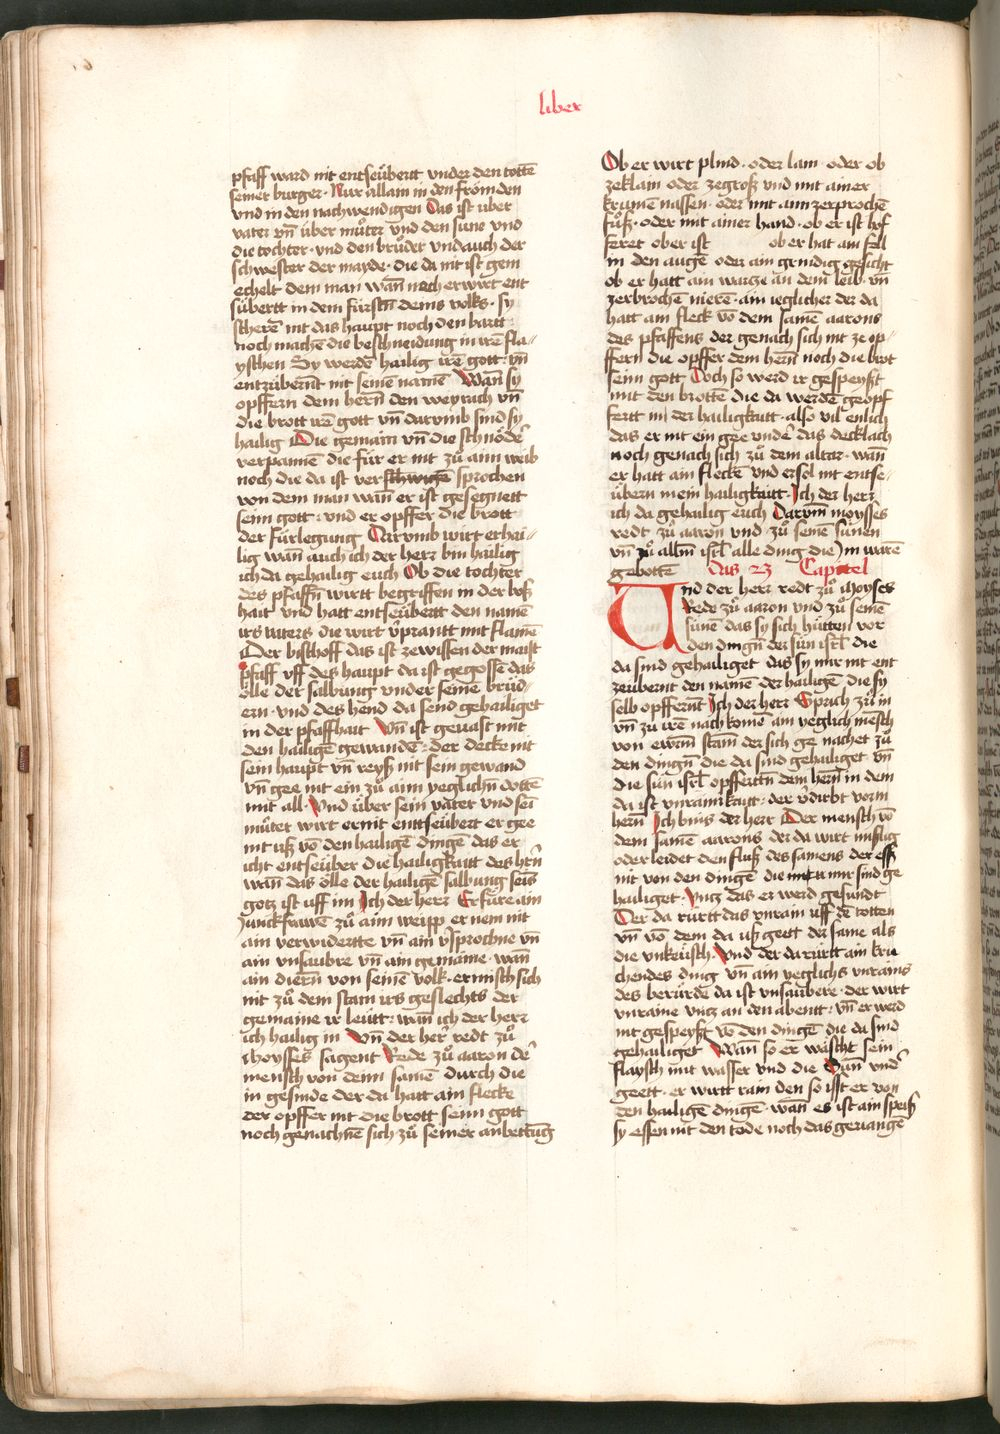 liber
pfaff ward nit entseübertt vnder den tottē
seiner burger · Nur allain in den frömden
vnd in den nachwendigen Das ist über
vater vn̄ über můter vnd den sune vnd
die tochter · vnd den brůder vnd auch der
schwester der mayde · die da nit ist gem
echelt dem man wan̄ noch er wirt ent
sübertt in dem fürstn̄ deins volks · sy
scherē nit das haupt noch den bartt
noch machē die beschneidung in irē fla//
yschen Sy werdē hailig irē gott · vn̄
entzübernt nit seinē namē Wan̄ sy
opffern dem hern̄ den weyrich vn̄
die brott irē gott vn̄ darvmb sind sy
hailig Die gemain vn̄ die schnödē
verpannē die für er nit zů ann weib
noch die da ist ver sprochen
von dem man wan̄ er ist gesegnett
seim gott · vnd er opffer die brott
der fürlegung Darvmb wirt er hai//
lig wan̄ auch ich der herr bin hailig
ich da gehailig euch Ob die tochter
des pfaffn̄ wirtt begriffen in der boß
hait vnd hatt entseübertt den namē
irs vaters die wirt v̄prantt mit flamē
Der bischoff das ist ze wissen der maist
pfaff vff des haupt da ist gegossē das
ölle der salbung vnder seinē brüd//
ern · vnd des hend da send gehailiget
in der pfaffhait Vn̄ ist gevast mit
den hailigē gewandē · der decke nit
sein haupt vn̄ reyß nit sein gewand
vn̄ gee nit ein zů aim yeglichn̄ dottē
mit all · Vnd über sein vater vnd sein
můter wirt er nit enttseübert er gee
nit uß vō den hailigē dingē das er
icht entseüber die hailigkaitt des hrn̄
wan̄ das ölle der hailigē salbung seins
gotz ist uff im Ich der herr Er füre ain
Junckfrawē zů aim weipp er nem nit
ain verwidertte vn̄ ain v̄sprochne vn̄
ain vnsaubre vn̄ ain gemaine · wan̄
ain diern̄ von seinē volk · er misch sich
nit zů dem stam irs geslechts der
gemaine ir leütt · wan̄ ich der herr
ich hailig in Vn̄ der her redt zů
Moyses sagent Rede zů aaron dē
mensch von deim samē durch die
in gesinde der da hatt ain flecke
der opffer nit die brott seim gott
noch genachnē sich zů seiner anbettūg
Ob er wirt plind · oder lam · oder ob
zeklain oder zegroß vnd mit ainer
krumē nassen · oder mit aim zerprochē
fůß · oder mit ainer hand · ob er ist hof
feret ob er ist ob er hat ain fell
in den augē oder ain grindig gesicht
ob er hatt ain wartze an dem leib · vn̄
zerbrochē nierē · ain ieglicher der da
hatt ain fleck vō dem samē aarons
des pfaffens der genach sich nit ze op//
ffern die opffer dem hern̄ noch die brot
seim gott Doch so werd er gespeyßt
mit den brottē die da werdē geopf
fertt in der hailigkaitt · also vil enlich
das er nit ein gee vndē das decklach
noch genach sich zů dem altar · wan̄
er hatt ain fleckē vnd er sol nit entse//
übern mein hailigkaitt · Ich der herr
ich da gehailig euch Darvm̄ moysses
redt zů aaron vnd zů seinē sünen
vn̄ zů allm̄ isrl̄ alle ding die Im warē
gebottē das 23 Capitel
Vnd der herr redt zů Moyses
Rede zů aaron vnd zů seinē
sünē das sy sich hütten vor
den dingn̄ der sün isrl̄ die
da sind gehailiget das sy nur nit ent
zeübernt den namē der hailigē die sy
selb opffernt Ich der herr Sprich zů in
vn̄ zu irē nachkomē ain yeglich mēsch
von ewrm̄ stam̄ der sich genachet zů
den dingn̄ die da sind gehailiget vn̄
die sün isrl̄ opffertn̄ dem hern̄ in dem
da ist vnrainikaitt · der v̄dirbt vorm
hern̄ Ich bins der herr Der mensch vō
dem samē aarons der da wirt mislig
oder leidet den fluß des samens der eß
nit von den dingē die mir sind ge
hailiget · vntz das er werd gesundt
Der da rürtt das vnrain uff dē totten
vn̄ vō dem da uß geett der same als
die vnkeüsch · Vnd der da rürtt ain krie
chendes ding vn̄ ain yeglichs vnrains
des berürde da ist vnsaubere · der wirt
vnraine vntz an den abentt · vn̄ er werd
nit gespeyßt vō den dingē die da sind
gehailiget Wan̄ so er wäscht sein
flaysch mit wasser vnd die Sun̄ vndē
geett · er wirtt rain den so isst er von
den hailigē dingē · wan̄ es ist ain speiß
sy essen nit den tode noch das gevangē